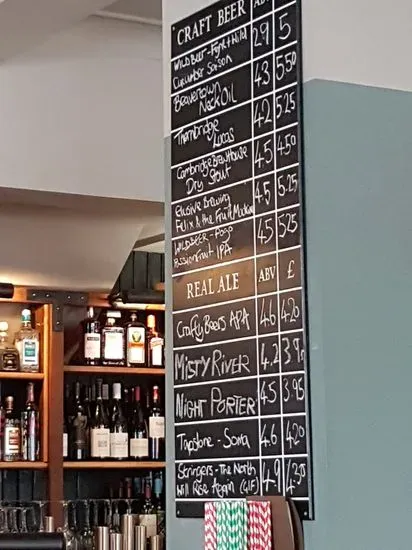 CRAFT BEER ABV £
WILDBEER - Fynk + Wild
Cucumber Saison 2.9 5
Beavertown
Neck Oil 4.3 5.50
Thornbridge
Lucas 4.2 5.25
Cambridge Brew House
Dry Stout 4.5 4.50
Elusive Brewing
Felix & the Fruit Machine 4.5 5.25
WILDBEER - Pogo
Passion Fruit IPA 4.5 5.25
REAL ALE ABV £
Crafty Beers APA 4.6 4.20
MISTY RIVER 4.2 3.90
NIGHT PORTER 4.5 3.95
Tapstone - Soma 4.6 4.20
Stringers - The North
Will Rise Again (GIF) 4.9